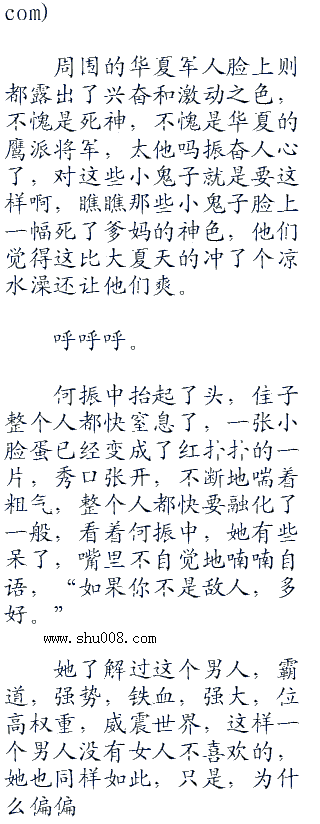 com)
周围的华夏军人脸上则
都露出了兴奋和激动之色，
不愧是死神，不愧是华夏的
鹰派将军，太他吗振奋人心
了，对这些小鬼子就是要这
样啊，瞧瞧那些小鬼子脸上
一幅死了爹妈的神色，他们
觉得这比大夏天的冲了个凉
水澡还让他们爽。
呼呼呼。
何振中抬起了头，佳子
整个人都快窒息了，一张小
脸蛋已经变成了红扑扑的一
片，秀口张开，不断地喘着
粗气，整个人都快要融化了
一般，看着何振中，她有些
呆了，嘴里不自觉地喃喃自
语，“如果你不是敌人，多
好。”
www.shu008.com
她了解过这个男人，霸
道，强势，铁血，强大，位
高权重，威震世界，这样一
个男人没有女人不喜欢的，
她也同样如此，只是，为什
么偏偏